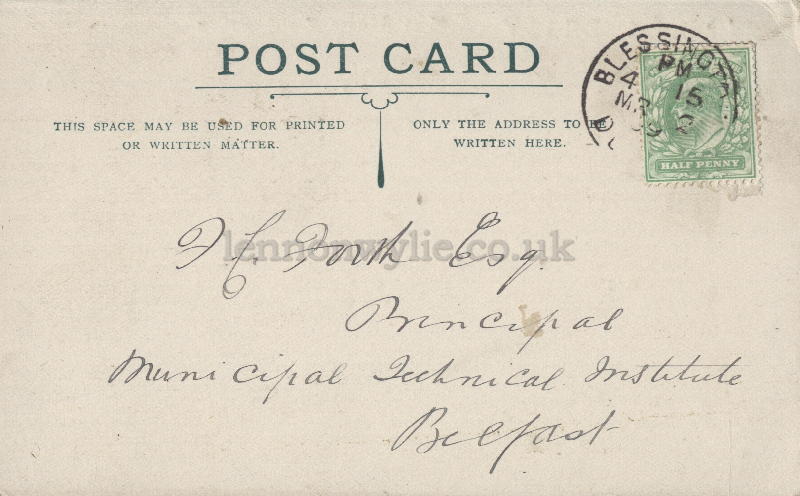 POST CARD
THIS SPACE MAY BE USED FOR PRINTED
OR WRITTEN MATTER.
ONLY THE ADDRESS TO BE
WRITTEN HERE.
BLESSINGT
4 PM
15
MR 2
09
HALF PENNY
lennonwylie.co.uk
F C. Forth Esq.
Principal
Municipal Technical Institute
Belfast